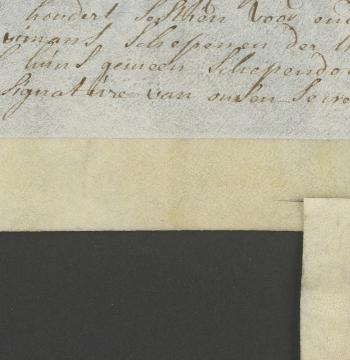 houdert Sesthen voor ons
Schepenen der
huns gemeen Schependo
Signature van onsen Secre